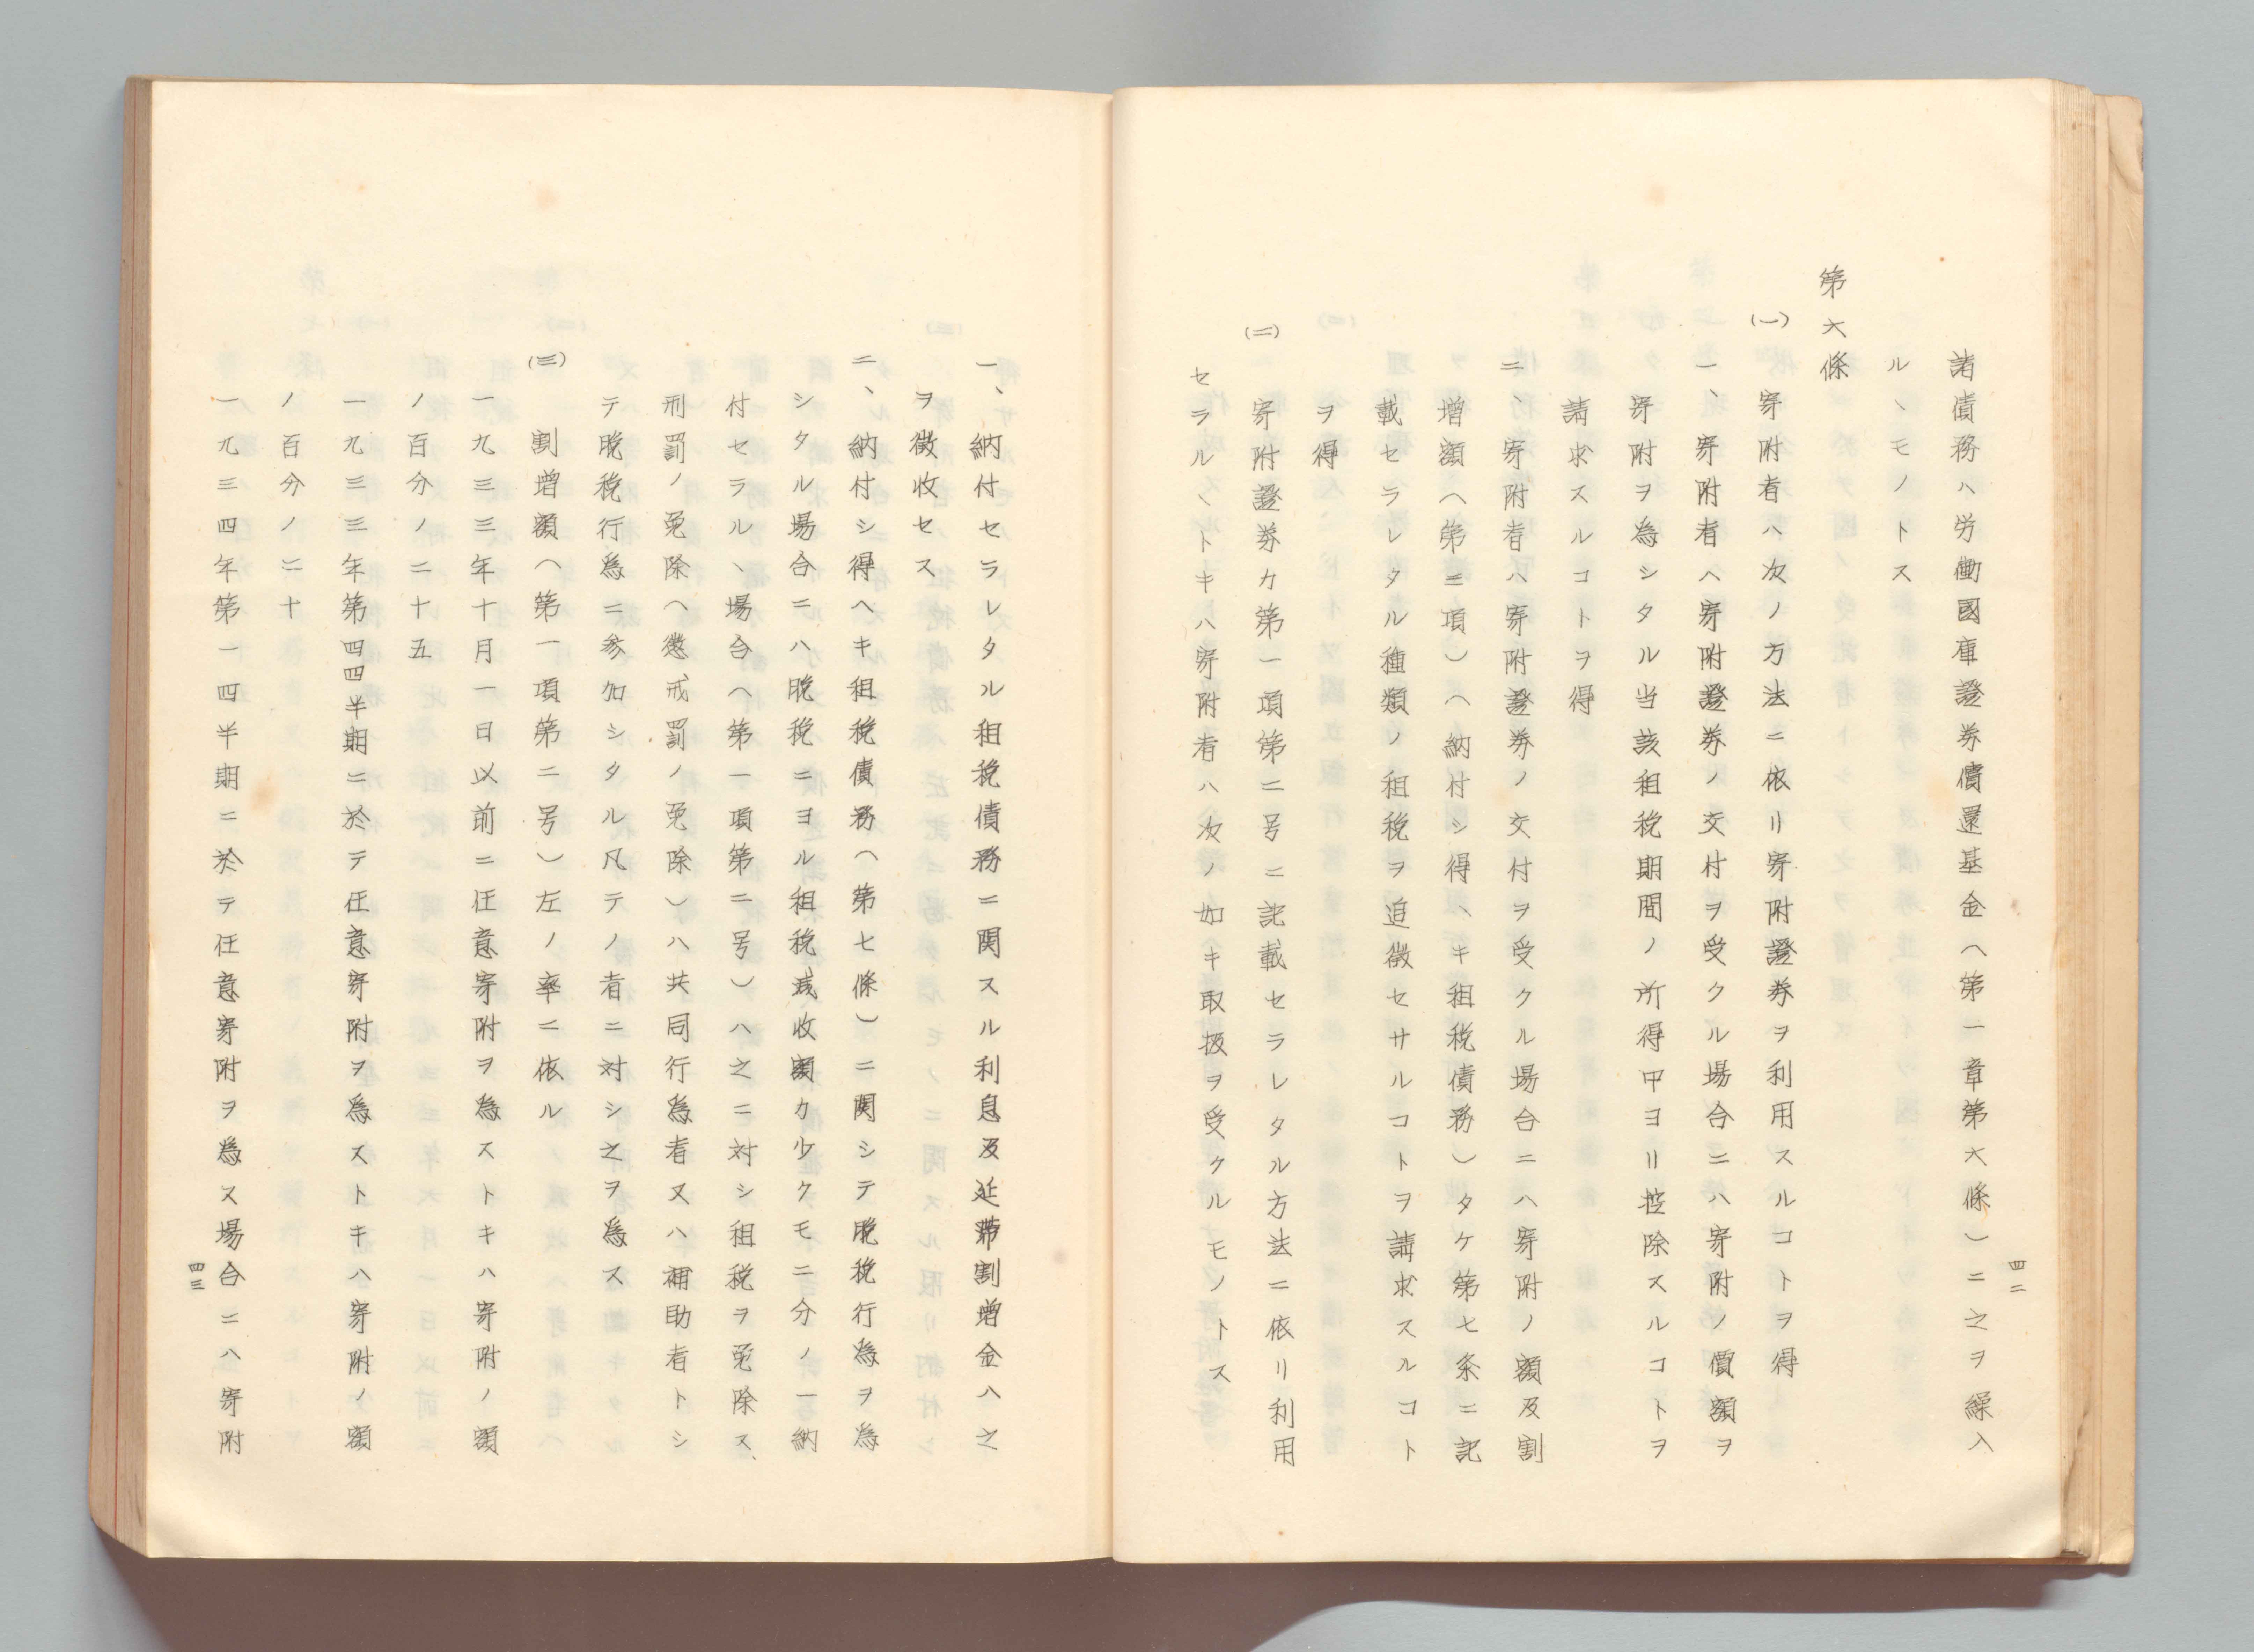 諸債務ハ労働國庫證券償還基金(第一章第六條)ニ之ヲ繰入
ルヽモノトス
第六條
(一) 寄附者ハ次ノ方法ニ依リ寄附證券ヲ利用スルコトヲ得
一、寄附者ヘ寄附證券ノ交付ヲ受クル場合ニハ寄附ノ價額ヲ
寄附ヲ為シタル当該租税期間ノ所得中ヨリ控除スルコトヲ
請求スルコトヲ得
二、寄附者ハ寄附證券ノ交付ヲ受クル場合ニハ寄附ノ額及割
増額(第三項)(納付シ得ヘキ租税債務)タケ第七条ニ記
載セラレタル種類ノ租税ヲ追徴セサルコトヲ請求スルコト
ヲ得
(二) 寄附證券カ第一項第二号ニ記載セラレタル方法ニ依リ利用
セラルヽトキハ寄附者ハ次ノ如キ取扱ヲ受クルモノトス
四二
一、納付セラレタル租税債務ニ関スル利息及延滞割増金ハ之
ヲ徴收セス
二、納付シ得ヘキ租税債務(第七條)ニ関シテ脱税行為ヲ為
シタル場合ニハ脱税ニヨル租税減收額カ少クモ二分ノ一納
付セラルヽ場合(第一項第二号)ハ之ニ対シ租税ヲ免除ス、
刑罰ノ免除(懲戒罰ノ免除)ハ共同行為者又ハ補助者トシ
テ脱税行為ニ参加シタル凡テノ者ニ対シ之ヲ為ス
(三) 割増額(第一項第二号)左ノ率ニ依ル
一九三三年十月一日以前ニ任意寄附ヲ為ストキハ寄附ノ額
ノ百分ノ二十五
一九三三年第四四半期ニ於テ任意寄附ヲ為ストキハ寄附ノ額
ノ百分ノ二十
一九三四年第一四半期ニ於テ任意寄附ヲ為ス場合ニハ寄附
四三